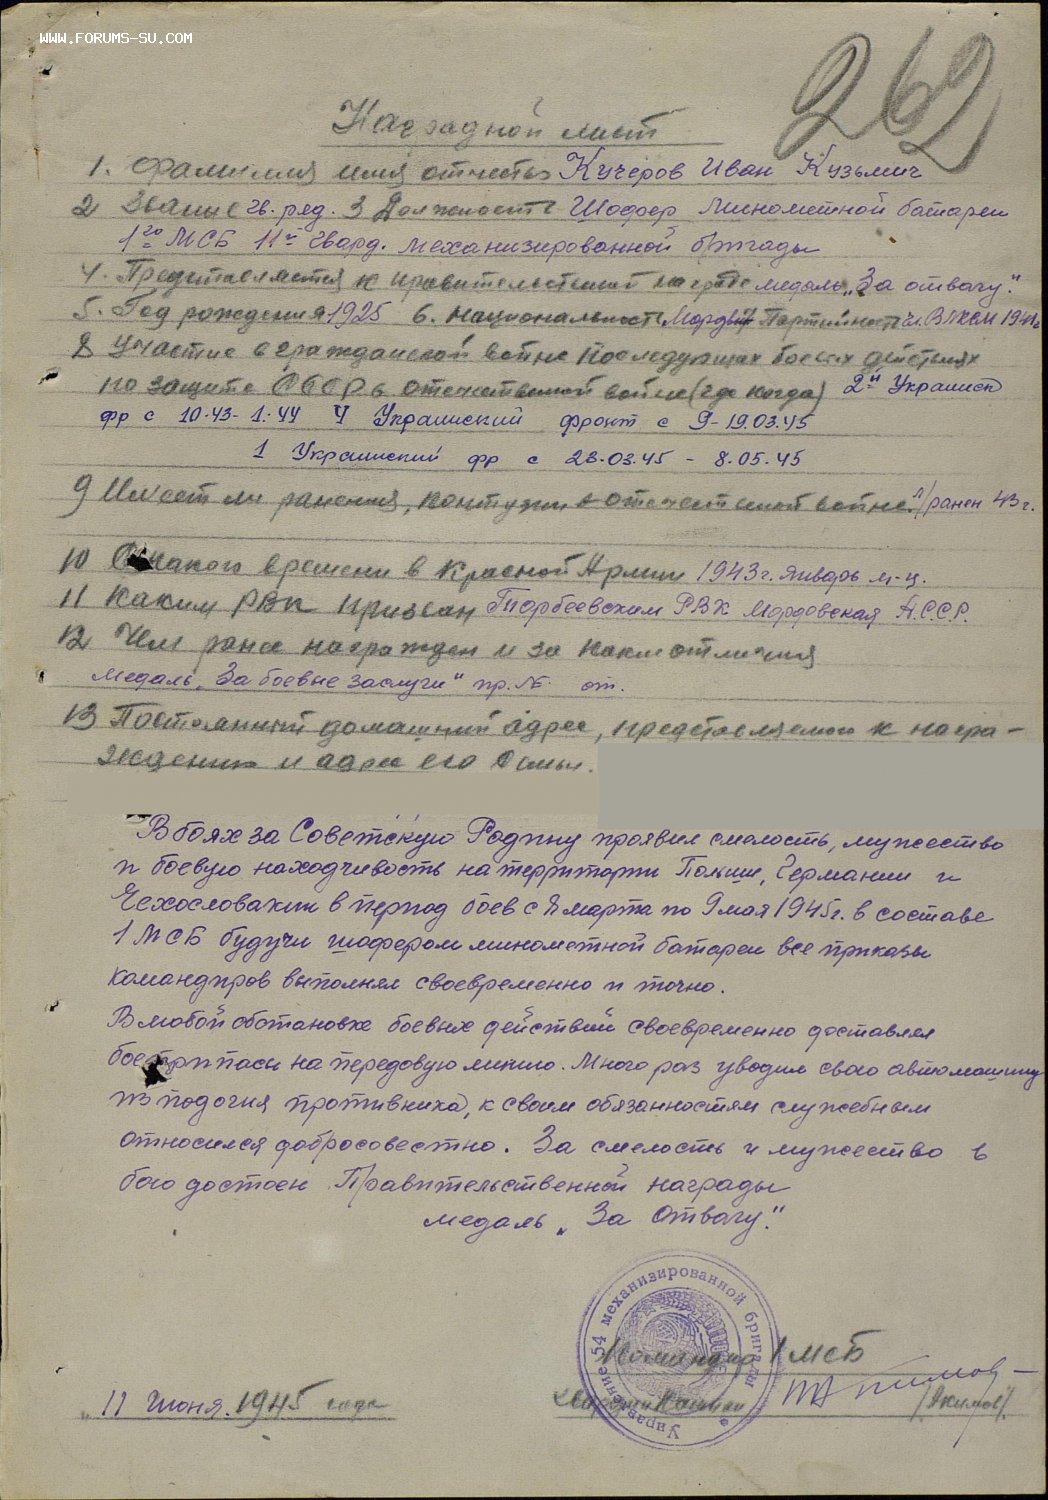 WWW.FORUMS-SU.COM
262
Наградной лист
1. Фамилия имя отчество Кучеров Иван Кузьмич
2 Звание гв. ряд. 3 Должность Шофер минометной батареи
1го МСБ 11й Гвард. механизированной бригады
4. Представляется к правительственной награде медаль „За отвагу."
5. Год рождения 1925 6. Национальность Мордвин Партийность чл. ВЛКСМ 1941г
8 Участие в гражданской войне последующих боевых действиях
по защите СССР в отечественной войне (где когда) 2й Украинск
фр с 10.43 - 1.44 4 Украинский фронт с 9-19.03.45
1 Украинский фр с 23.03.45 - 8.05.45
9 Имеет ли ранения, контузии в отечественной войне. л/ранен 43г.
10 С какого времени в Красной Армии 1943г. январь м-ц.
11 Каким РВК призван Торбеевским РВК Мордовская А.С.С.Р.
12 Чем ранее награжден и за какие отличия
медаль „За боевые заслуги" пр. № от.
13 Постоянный домашний адрес, представляемого к награ-
ждению и адрес его семьи.
В боях за Советскую Родину проявил смелость, мужество
и боевую находчивость на территории Польши, Германии и
Чехословакии в период боев с 8 марта по 9 мая 1945г. в составе
1 МСБ будучи шофером минометной батареи все приказы
командиров выполнял своевременно и точно.
В любой обстановке боевых действий своевременно доставлял
боеприпасы на передовую линию. Много раз уводил свою автомашину
из под огня противника, к своим обязанностям служебным
относился добросовестно. За смелость и мужество в
бою достоен Правительственной награды
медаль „За Отвагу."
Управление 54 механизированной бригады
Командир 1 МСБ
11 Июня. 1945 года
Гвардии Капитан /Якимов/.